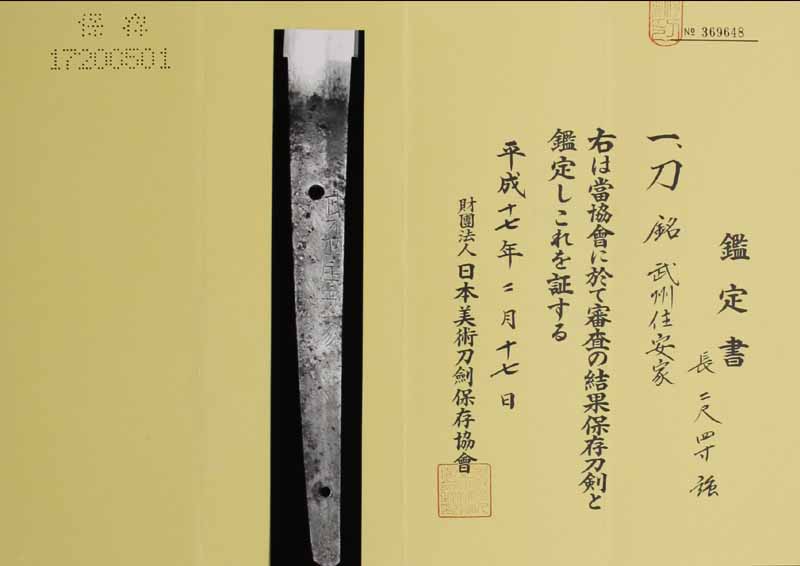 保存
17200501
№ 369648
鑑定書
一、刀 銘 武州住安家
長 二尺四寸強
右は當協會に於て審査の結果保存刀剣と
鑑定しこれを証する
平成十七年二月十七日
財團法人 日本美術刀劍保存協會
武州住安家